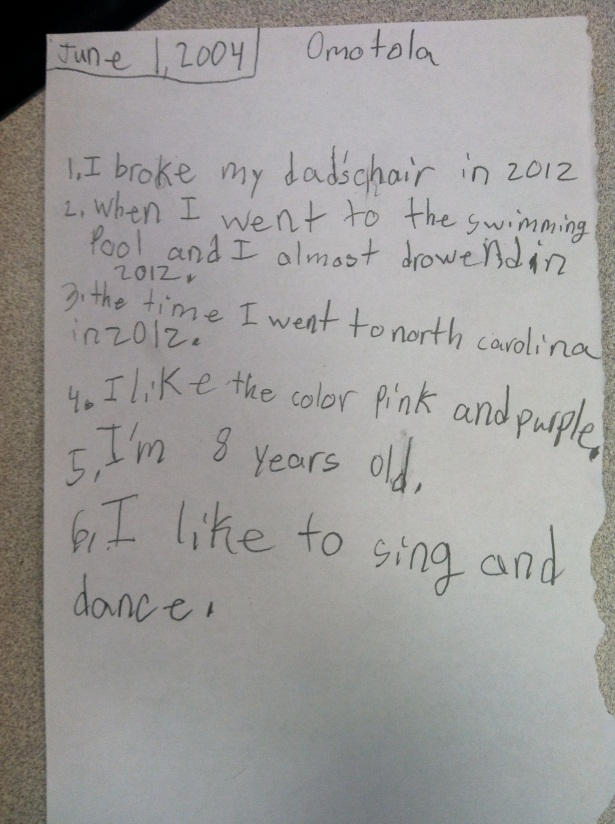 June 1, 2004 Omotola
1. I broke my dad's chair in 2012
2. when I went to the swimming
Pool and I almost drowendin
2012.
3. the time I went to north carolina
in 2012.
4. I like the color pink and purple.
5, I'm 8 years old.
6, I like to sing and
dance.